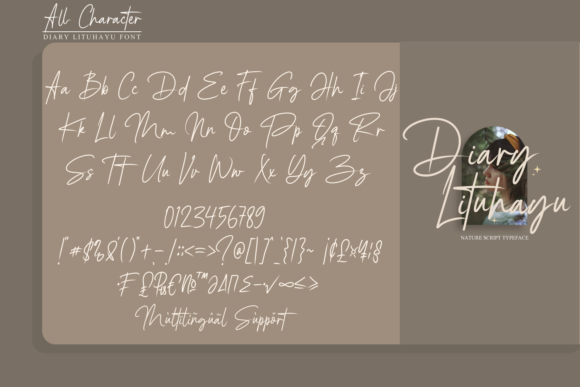 All Character
DIARY LITUHAYU FONT
Aa Bb Cc Dd Ee Ff Gg Hh Ii Jj
Kk Ll Mm Nn Oo Pp Qq Rr
Ss Tt Uu Vv Ww Xx Yy Zz
0123456789
!"#$%&'()*+-./:;<=>?@[\]^_`{|}~
Multilingual Support
Diary
Lituhayu
NATURE SCRIPT TYPEFACE